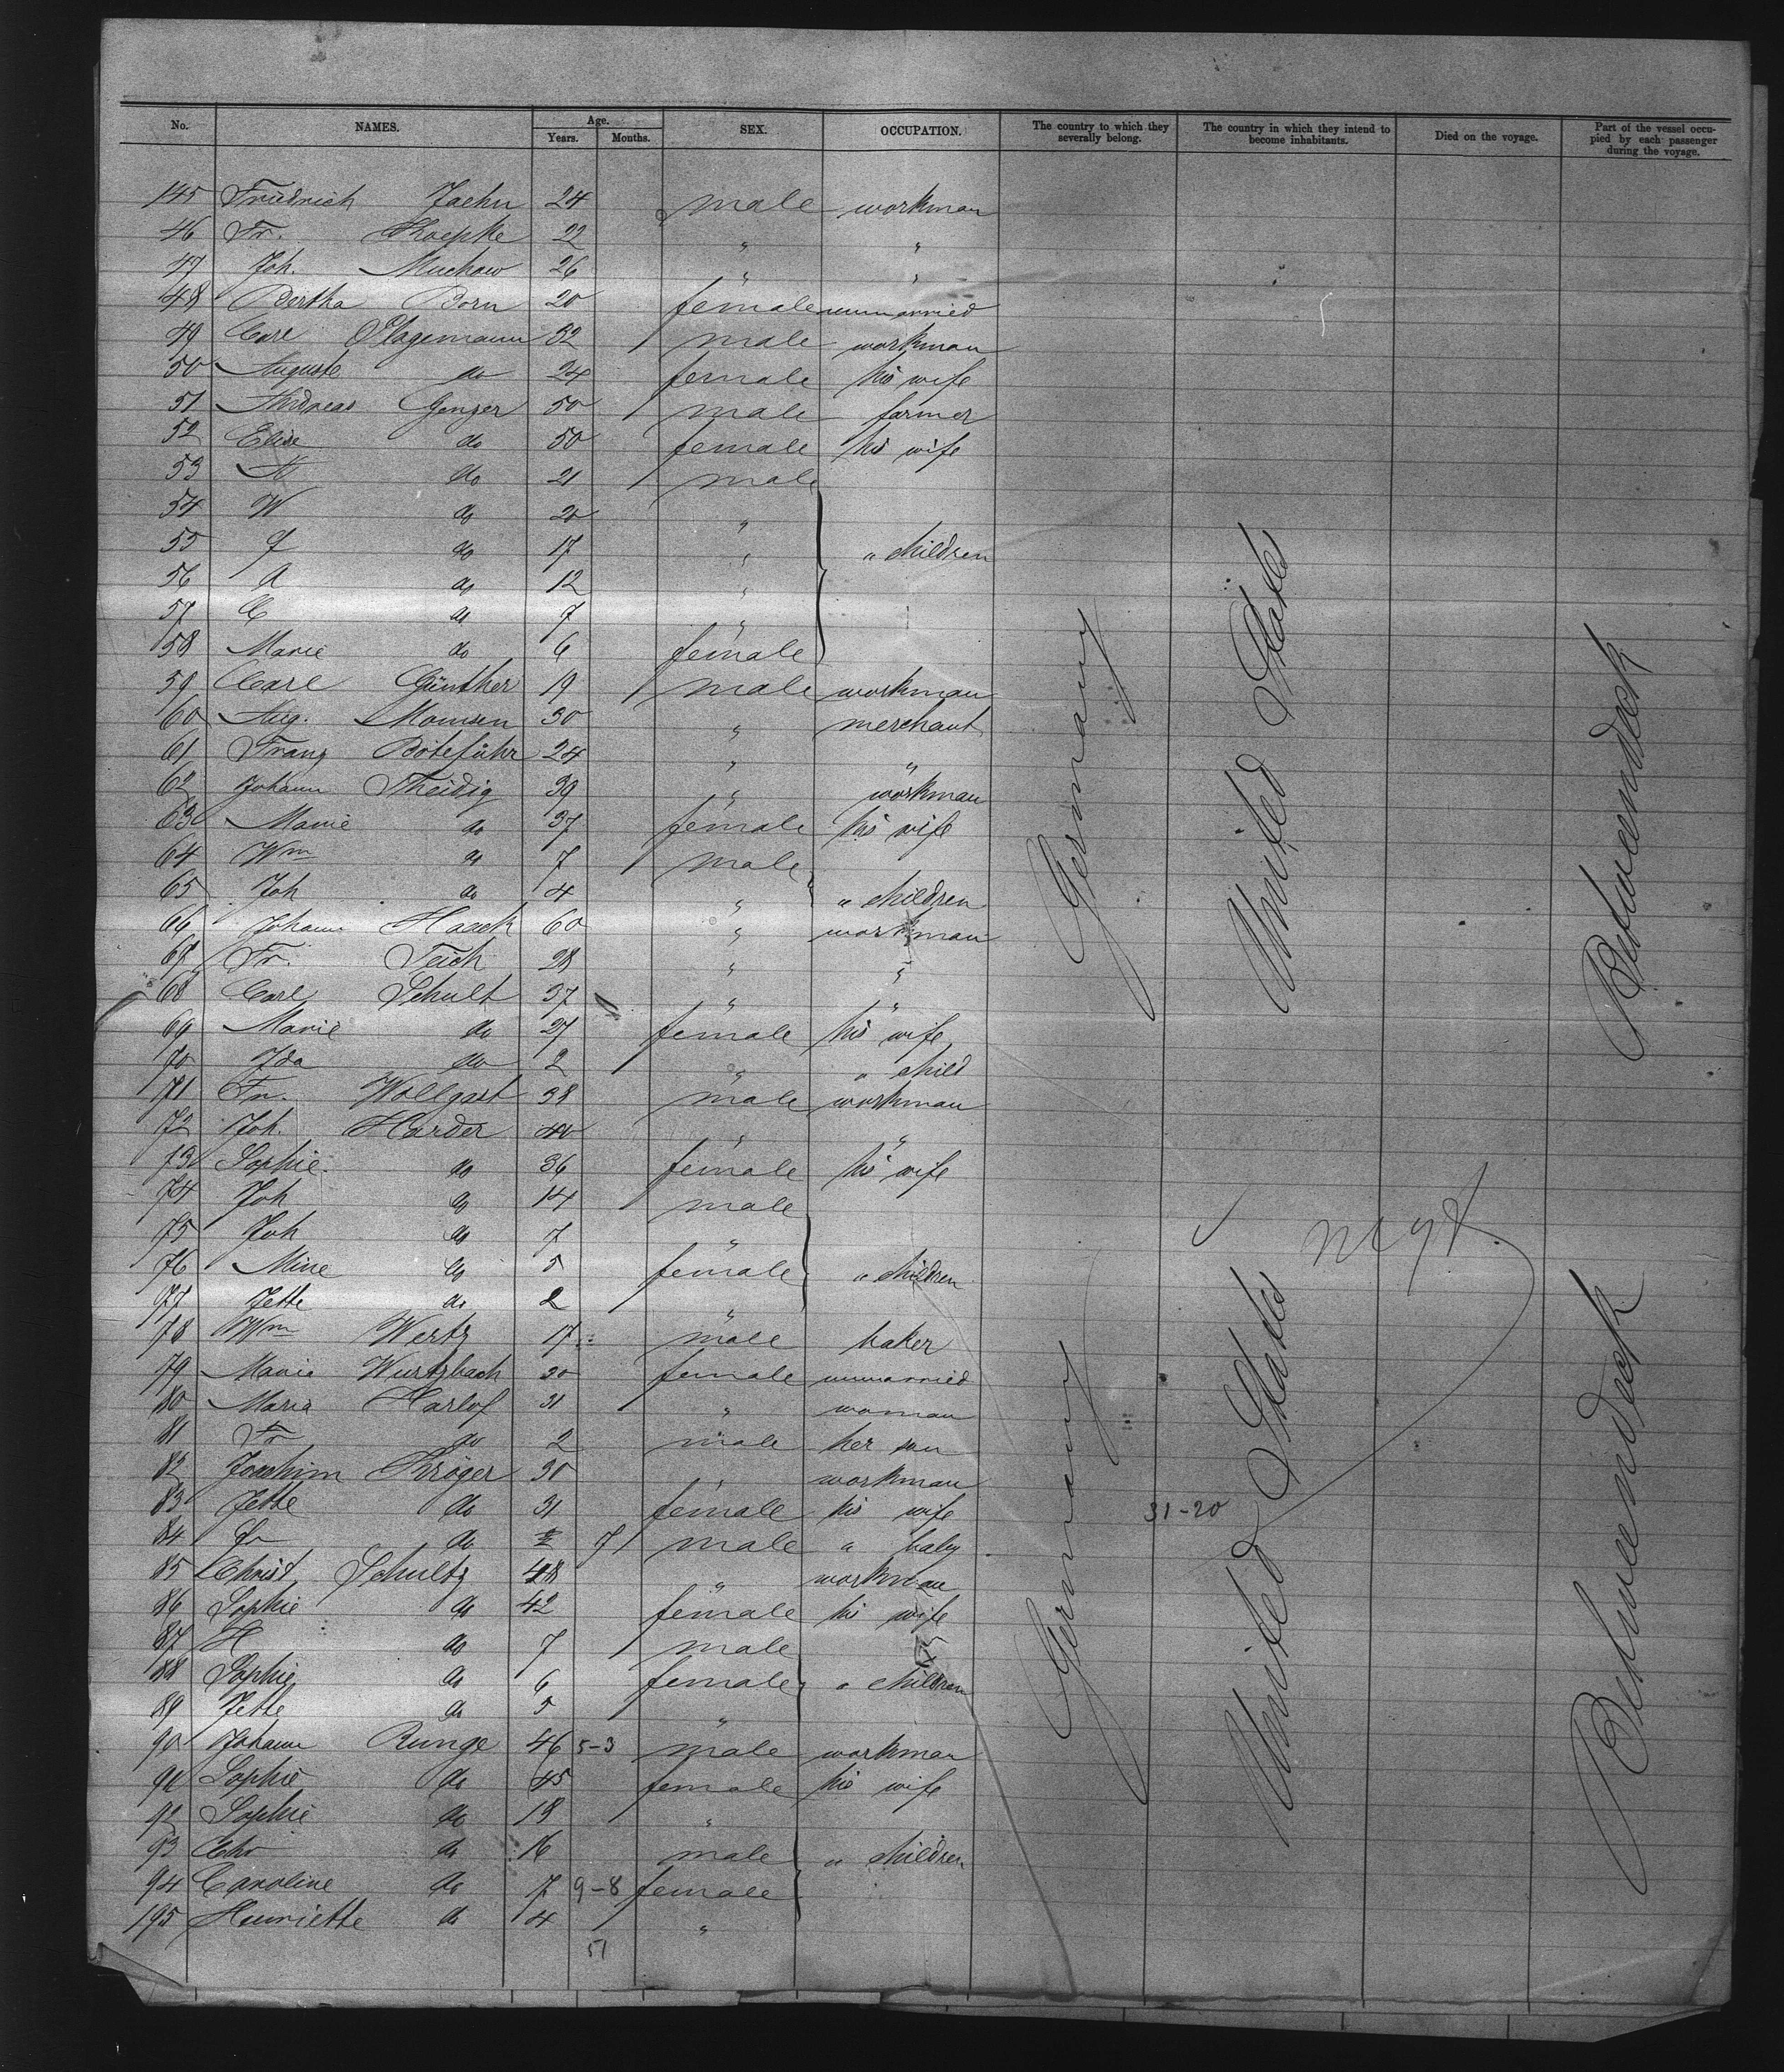 No. NAMES. Age. Years. Months. SEX. OCCUPATION. The country to which they severally belong. The country in which they intend to become inhabitants. Died on the voyage. Part of the vessel occupied by each passenger during the voyage.
145 Friedrich Jaehn 24 male workman
46 Fr. Koepke 22 " "
47 Joh. Muchow 26 " "
48 Bertha Born 20 female unmarried
49 Carl Plagemann 32 male workman
50 Auguste do 24 female his wife
51 Andreas Genzer 50 male farmer
52 Elise do 50 female his wife
53 do 21 male
54 W do 20 "
55 do 17 " " children
56 A do 12 "
57 C do 7 "
58 Marie do 6 female
59 Carl Günther 19 male workman
60 Aug. Momsen 30 " merchant
61 Franz Böteführ 24 " "
62 Johann Theidig 39 " workman
63 Marie do 37 female his wife
64 Wm do 7 male
65 Joh do 4 " " children
66 Johann Haack 60 " workman
67 Fr. Teich 28 " "
68 Carl Schult 37 " "
69 Marie do 27 female his wife
70 Ida do 2 " " child
71 Fr. Wollgast 38 male workman
72 Joh. Harder 40 " "
73 Sophie do 36 female his wife
74 Joh do 14 male
75 Joh do 7 "
76 Mine do 5 female " children
77 Jette do 2 "
78 Wm Wertz 17 male baker
79 Maria Wurtzbach 30 female unmarried
80 Maria Harlof 31 " woman
81 Fr do 2 male her son
82 Joachim Kröger 30 " workman
83 Jette do 31 female his wife
84 do 7 male " baby
85 Christ Schultz 48 " workman
86 Sophie do 42 female his wife
87 H do 7 male
88 Sophie do 6 female " children
89 Jette do 5 "
90 Johann Runge 46 5-3 male workman
91 Sophie do 45 female his wife
92 Sophie do 18 "
93 Chr do 16 male " children
94 Caroline do 7 9-8 female
195 Henriette do 4 "
51
Germany
United States
Betweendeck
Germany
United States
Betweendeck
31-20